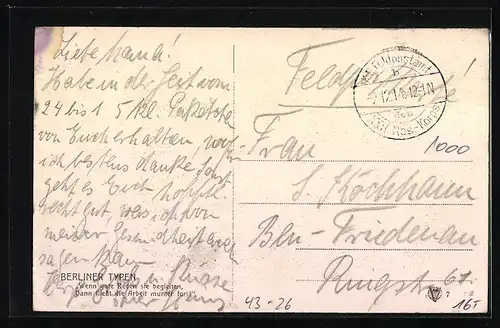 Liebe Mama!
Habe in der Zeit vom
24 bis 1 5 Kl. Pakete
von Euch erhalten, wofür
ich bestens danke. Sonst
geht es Euch hoffentl.
recht gut, was ich von
meiner Gesundheit auch
sagen kann
Küsse
BERLINER TYPEN
„Wenn gute Reden sie begleiten,
Dann fließt die Arbeit munter fort!"
Feldpostamt
b
12.1N
Res.-Korps
1000
Frau
S. Köchhann
Bln-Friedenau
Ringstr 61
43-26
16:-